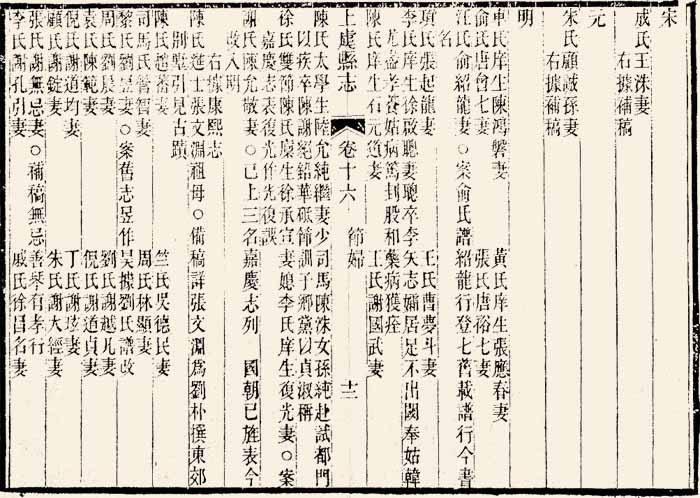 宋
戚氏王洙妻
右據補稿
元
朱氏顧誠孫妻
右據補稿
明
車氏庠生陳鴻磐妻　黃氏庠生張應春妻
俞氏唐會七妻　張氏唐裕七妻
汪氏俞紹龍妻○案俞氏譜紹龍行登七舊載譜行今書
名
項氏張起龍妻　王氏曹夢斗妻
李氏庠生徐啟聰妻聰卒李矢志孀居足不出閾奉姑韓
尤盡孝養姑病篤刲股和藥病獲痊
陳氏庠生石元道妻　王氏謝國武妻
上虞縣志　卷十六　節婦　十二
陳氏太學生陸允純繼妻少司馬陳洙女孫純赴試都門
以疾卒陳謝絕鉛華砥節訓子鄉黨以貞淑稱
徐氏雙節陳氏庠生徐承宣妻媳李氏庠生復光妻○案
嘉慶志表復光作先復誤
謝氏陳允敬妻○已上三名嘉慶志列　國朝已旌表今
改入明
右據康熙志
陳氏進士張文淵祖母○備稿詳張文淵爲劉朴撰東郊
別墅引見古蹟
陳氏趙蕃妻　竺氏吳德民妻
司馬氏管智妻　周氏林顯妻
黎氏劉昱妻○案舊志昱作吳據劉氏譜改
周氏劉晨妻　劉氏謝越凡妻
袁氏陳範妻　倪氏謝道貞妻
倪氏謝道均妻　丁氏謝玹妻
顧氏謝錠妻　朱氏謝大經妻
張氏謝無忌妻○補稿無忌善琴有孝行
李氏謝孔引妻　戚氏徐昌名妻